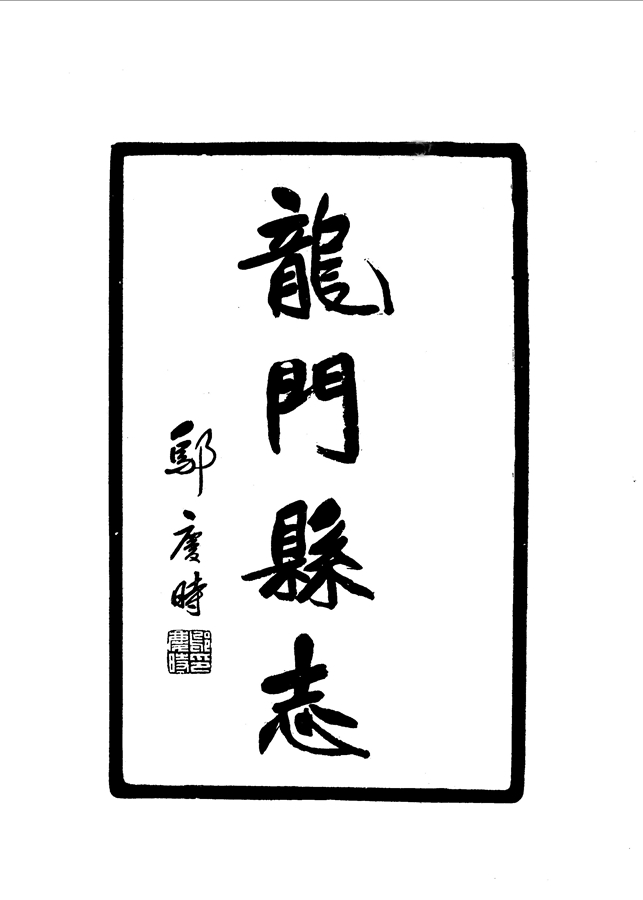 龍門縣志
鄔慶時
鄔慶時印